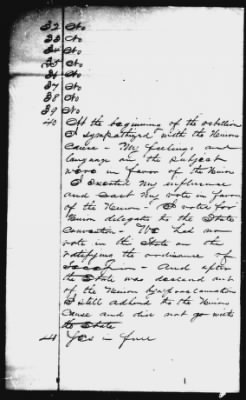 32 No
33 No
34 No
35 No
36 No
37 No
38 No
39 No
40 At the beginning of the rebellion
I sympathized with the Union
Cause - My feelings and
language on the subject
were in favor of the Union
I exerted my influence
and cast my vote in favor
of the Union - I voted for
Union delegate to the State
Convention - We had no
vote in the State on the
ratifying the ordinance of
Secession - And after
the State was declared out
of the Union by proclamation
I still adhered to the Union
Cause and did not go with
the State
41 Yes - in full